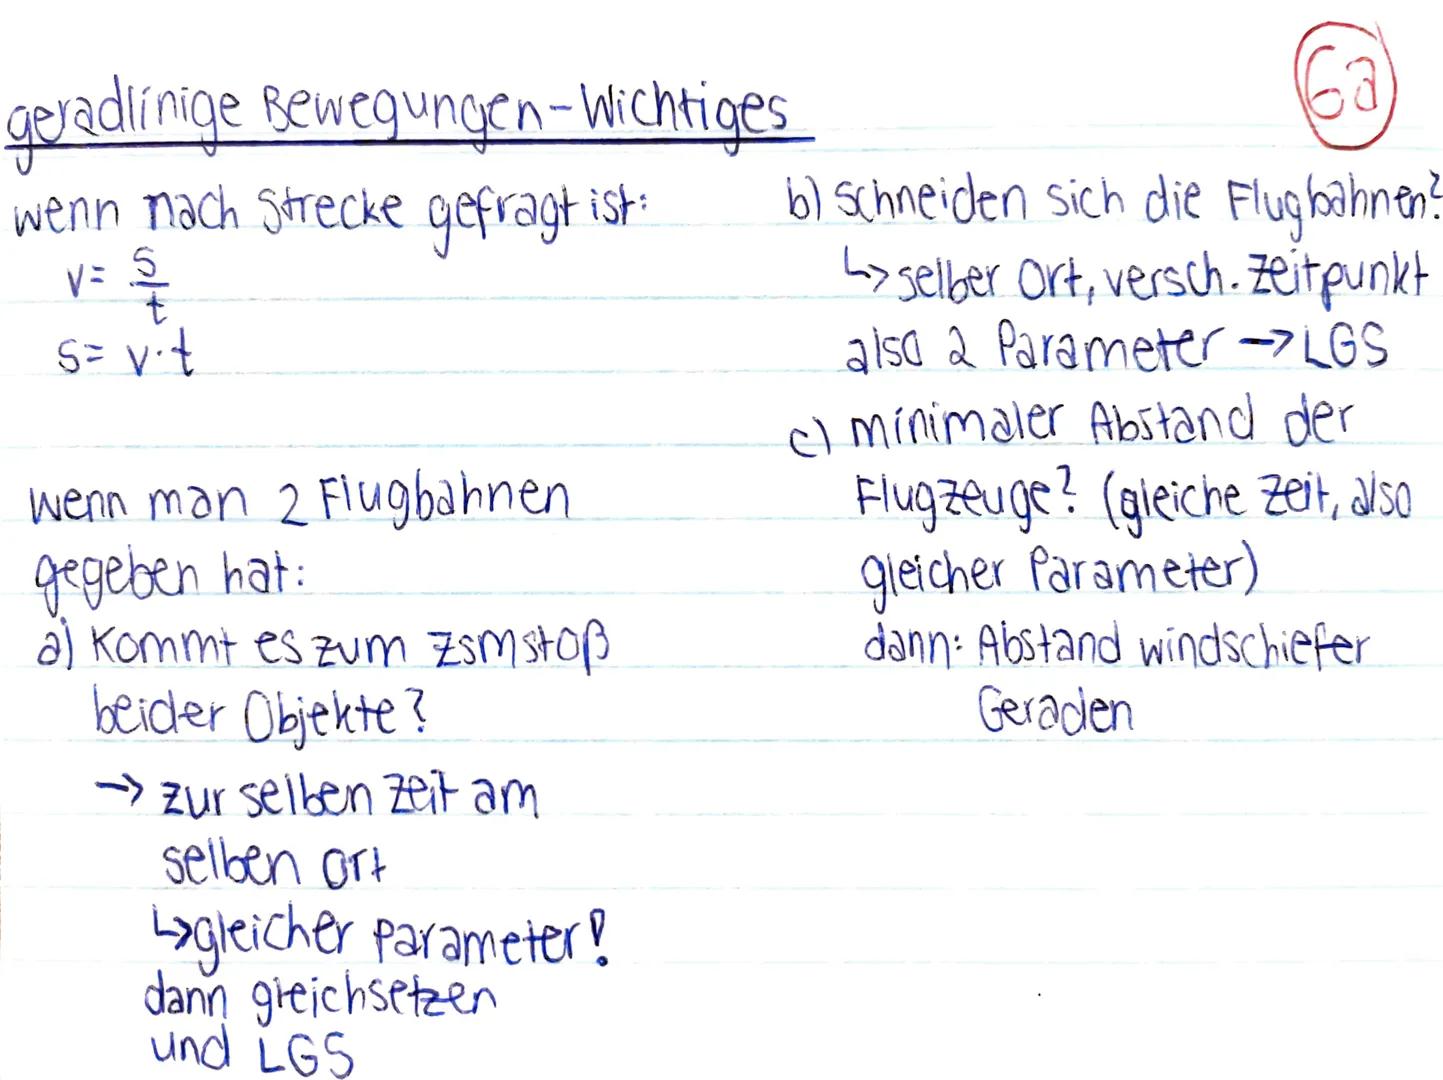 6a
geradlinige Bewegungen-Wichtiges
wenn nach Strecke gefragt ist:
v= s/t
s= v·t
wenn man 2 Flugbahnen
gegeben hat:
a) Kommt es zum zsmstoß
beider Objekte?
→ zur selben Zeit am
selben Ort
↳ gleicher Parameter!
dann gleichsetzen
und LGS
b) schneiden sich die Flugbahnen?
↳ selber Ort, versch. Zeitpunkt
also 2 Parameter → LGS
c) minimaler Abstand der
Flugzeuge? (gleiche Zeit, also
gleicher Parameter)
dann: Abstand windschiefer
Geraden